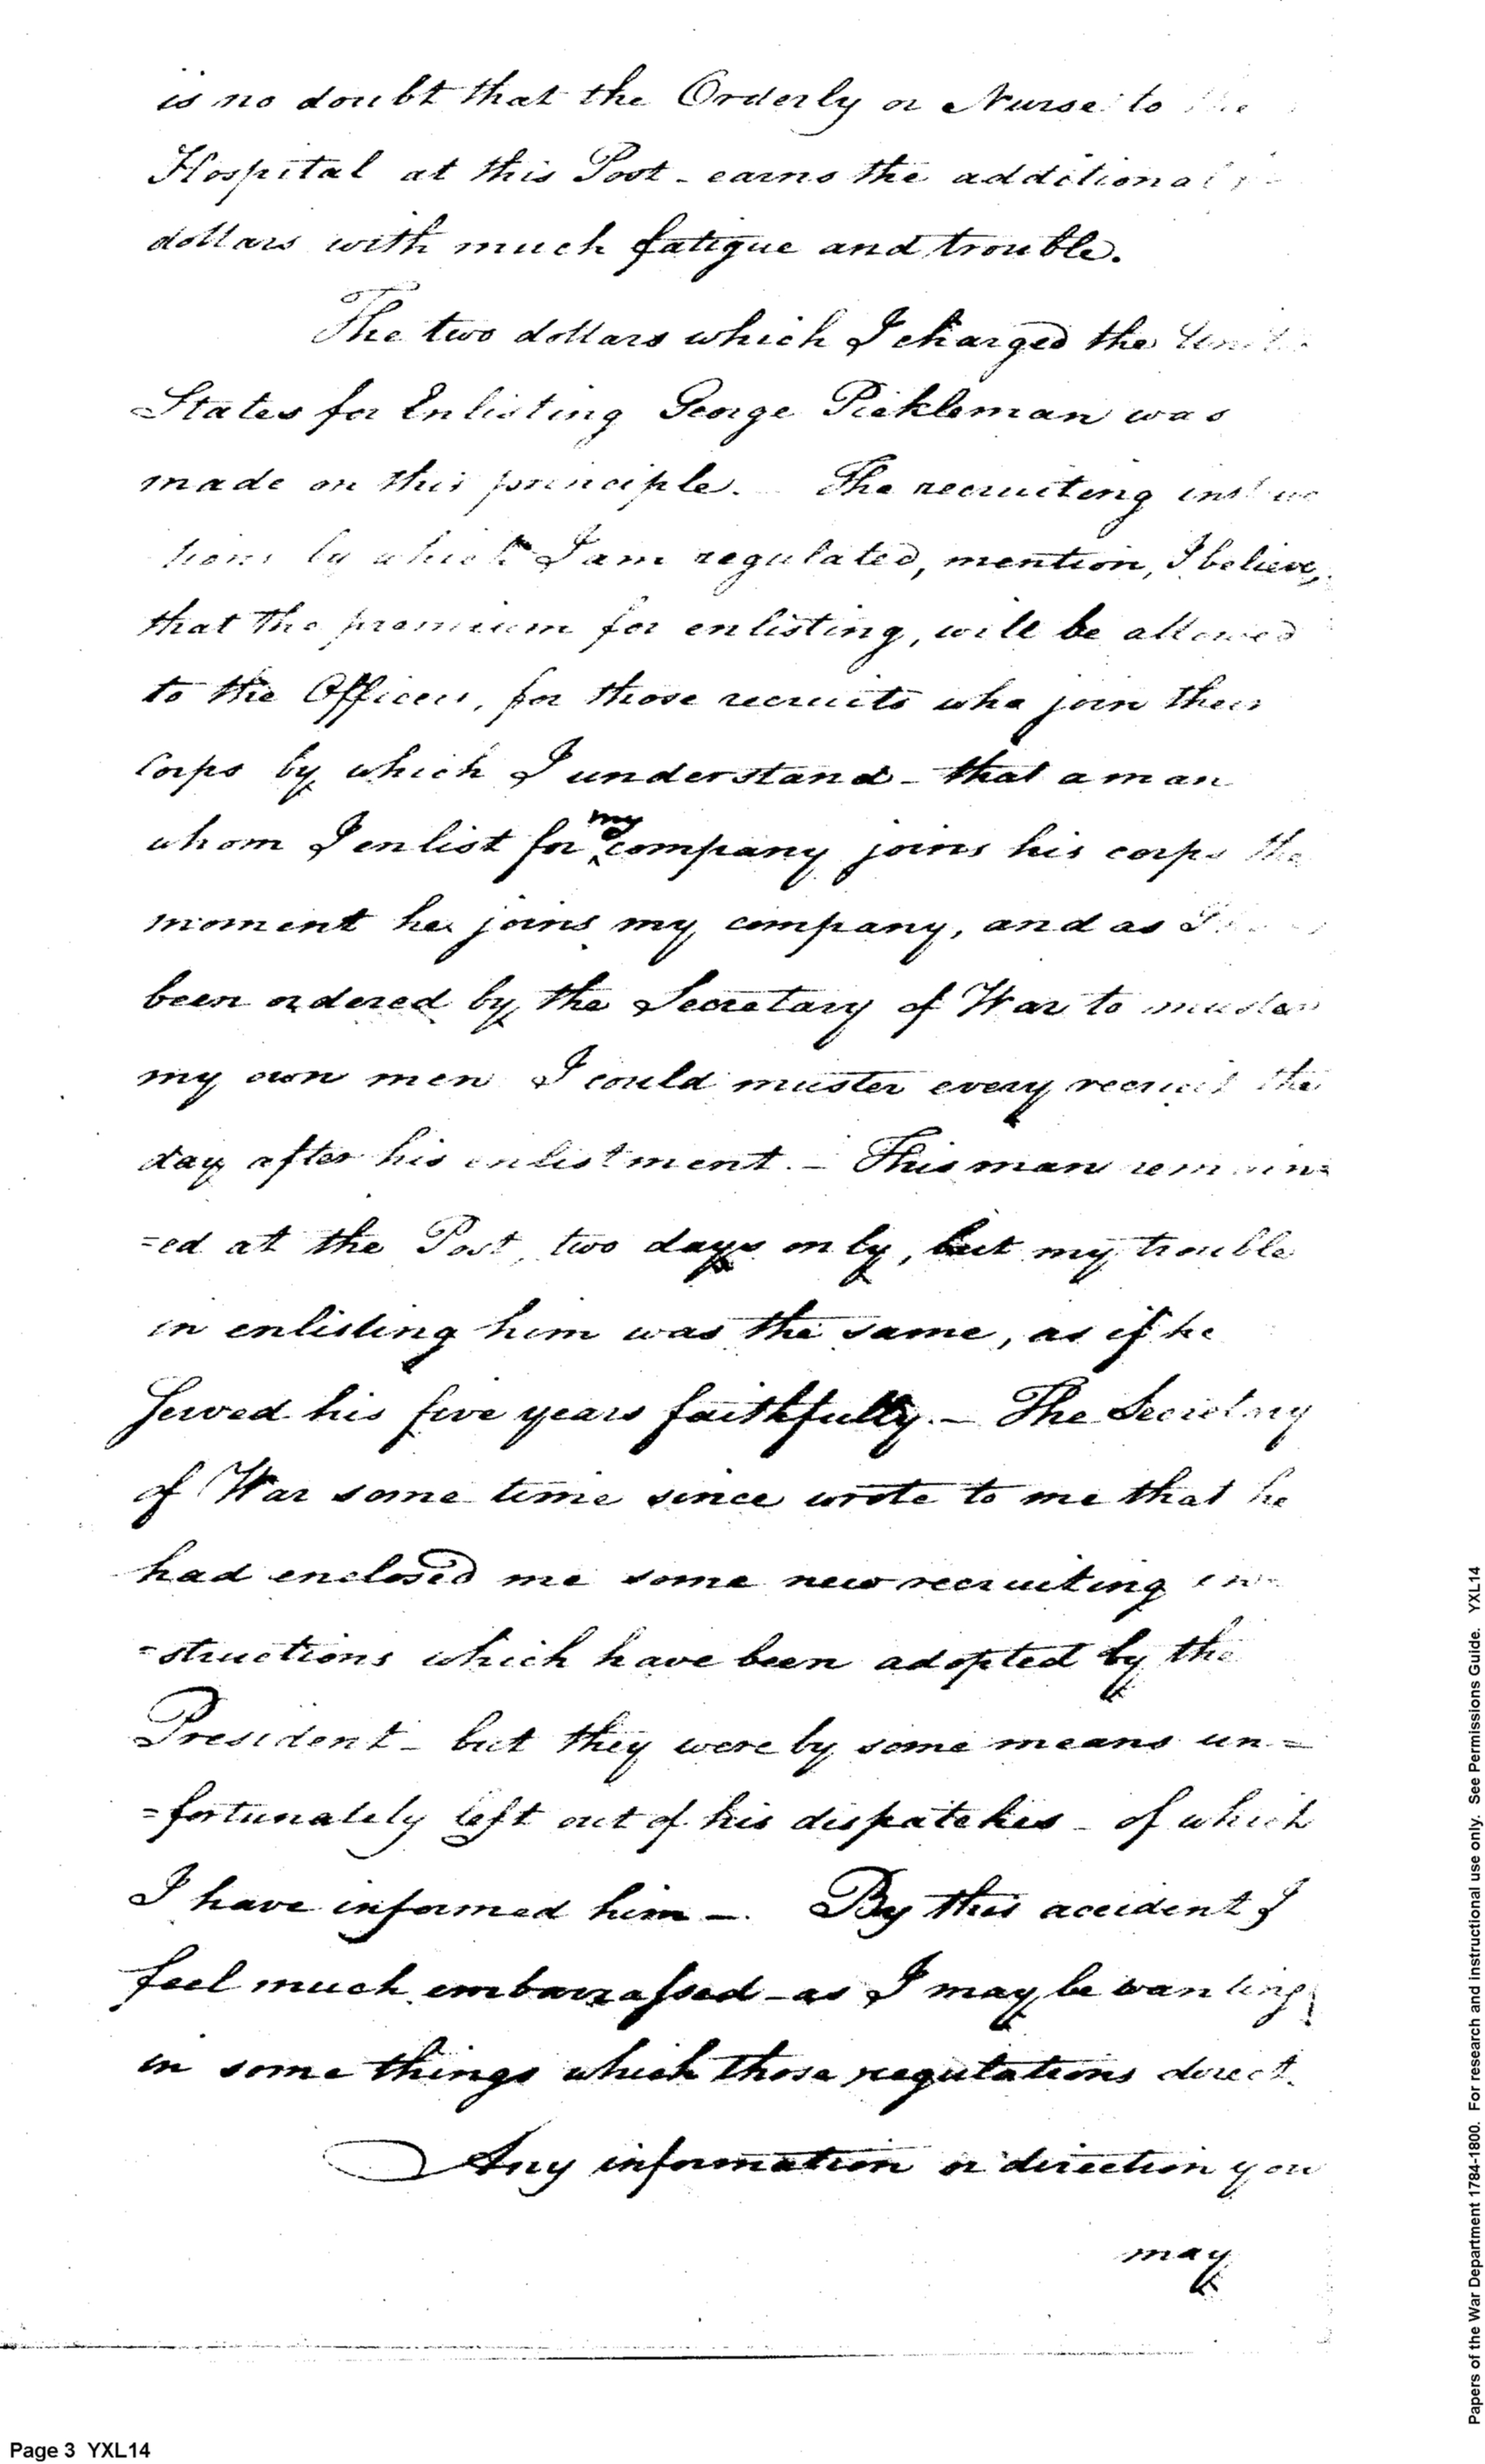 is no doubt that the Orderly or Nurse to the
Hospital at this Post - earns the additional
dollars with much fatigue and trouble.
The two dollars which I charged the
States for Enlisting George Pickleman was
made on this principle. The recruiting
by which I am regulated, mention, I believe,
that the premium for enlisting, will be allowed
to the Officers, for those recruits who join their
Corps by which I understand - that a man
my
whom I enlist for company joins his corps the
moment he joins my company, and as I
been ordered by the Secretary of War to muster
my own men I could muster every recruit the
day after his enlistment. - This man remain=
=ed at the Post, two days only, but my trouble
in enlisting him was the same, as if he
Served his five years faithfully. - The Secretary
of War some time since wrote to me that he
had enclosed me some new recruiting in=
=structions which have been adopted by the
President - but they were by some means un=
=fortunately left out of his dispatches - of which
I have informed him -. By this accident I
feel much embarrassed - as I may be wanting
in some things which those regulations direct.
Any information or direction you
may
Page 3 YXL14
Papers of the War Department 1784-1800. For research and instructional use only. See Permissions Guide. YXL14